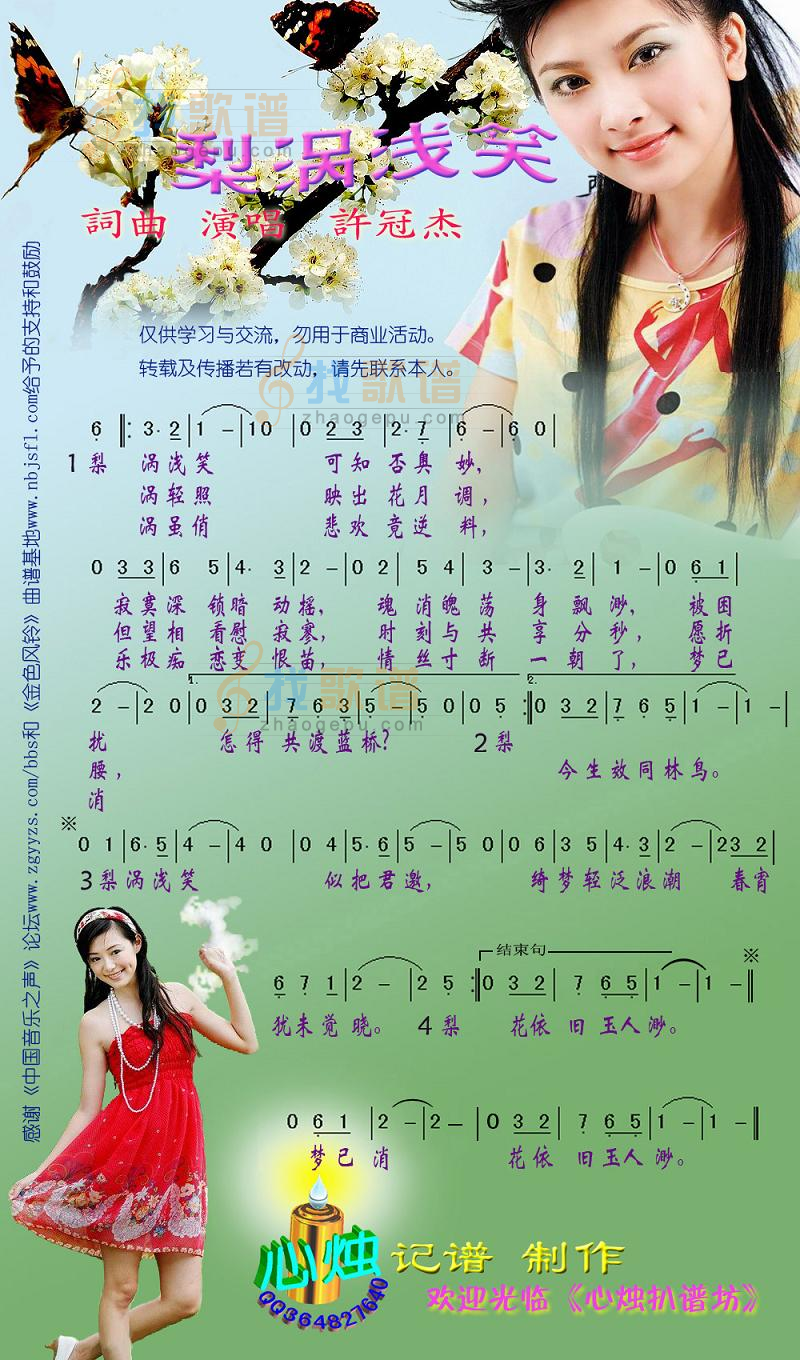 梨涡浅笑
詞曲 演唱 許冠杰
仅供学习与交流，勿用于商业活动。
转载及传播若有改动，请先联系本人。
找歌谱
zhaogepu.com
6 ‖: 3· 2 | 1 – | 1 0 | 0 2 3 | 2· 7 | 6 – | 6 0 |
1梨 涡浅笑 可知 否奥 妙，
涡轻照 映出 花月 调，
涡虽俏 悲欢 竟逆 料，
0 3 3 | 6 5 | 4· 3 | 2 – | 0 2 | 5 4 | 3 – | 3· 2 | 1 – | 0 6 1 |
寂寞深 锁暗 动摇， 魂 消魄 荡 身 飘 渺， 被困
但望相 看慰 寂寥， 时 刻与 共 享 分 秒， 愿折
乐极痴 恋变 恨苗， 情 丝寸 断 一 朝 了， 梦已
1. 2.
2 – | 2 0 | 0 3 2 | 7 6 3 | 5 – | 5 0 | 0 5 :‖ 0 3 2 | 7 6 5 | 1 – | 1 – |
扰 怎得 共渡蓝桥? 2梨
腰， 今生效同林鸟。
消
※
0 1 | 6· 5 | 4 – | 4 0 | 0 4 | 5· 6 | 5 – | 5 0 | 0 6 | 3 5 | 4· 3 | 2 – | 2 3 2 |
3梨涡浅笑 似把君邀， 绮梦轻泛浪潮 春宵
结束句 ※
6 7 1 | 2 – | 2 5 :‖ 0 3 2 | 7 6 5 | 1 – | 1 – ‖
犹未觉晓。 4梨 花依 旧 玉人 渺。
0 6 1 | 2 – | 2 – | 0 3 2 | 7 6 5 | 1 – | 1 – ‖
梦已 消 花依 旧玉人 渺。
心烛 记谱 制作
QQ364827640
欢迎光临《心烛扒谱坊》
感谢《中国音乐之声》论坛www.zgyyzs.com/bbs和《金色风铃》曲谱基地www.nbjsfl.com给予的支持和鼓励